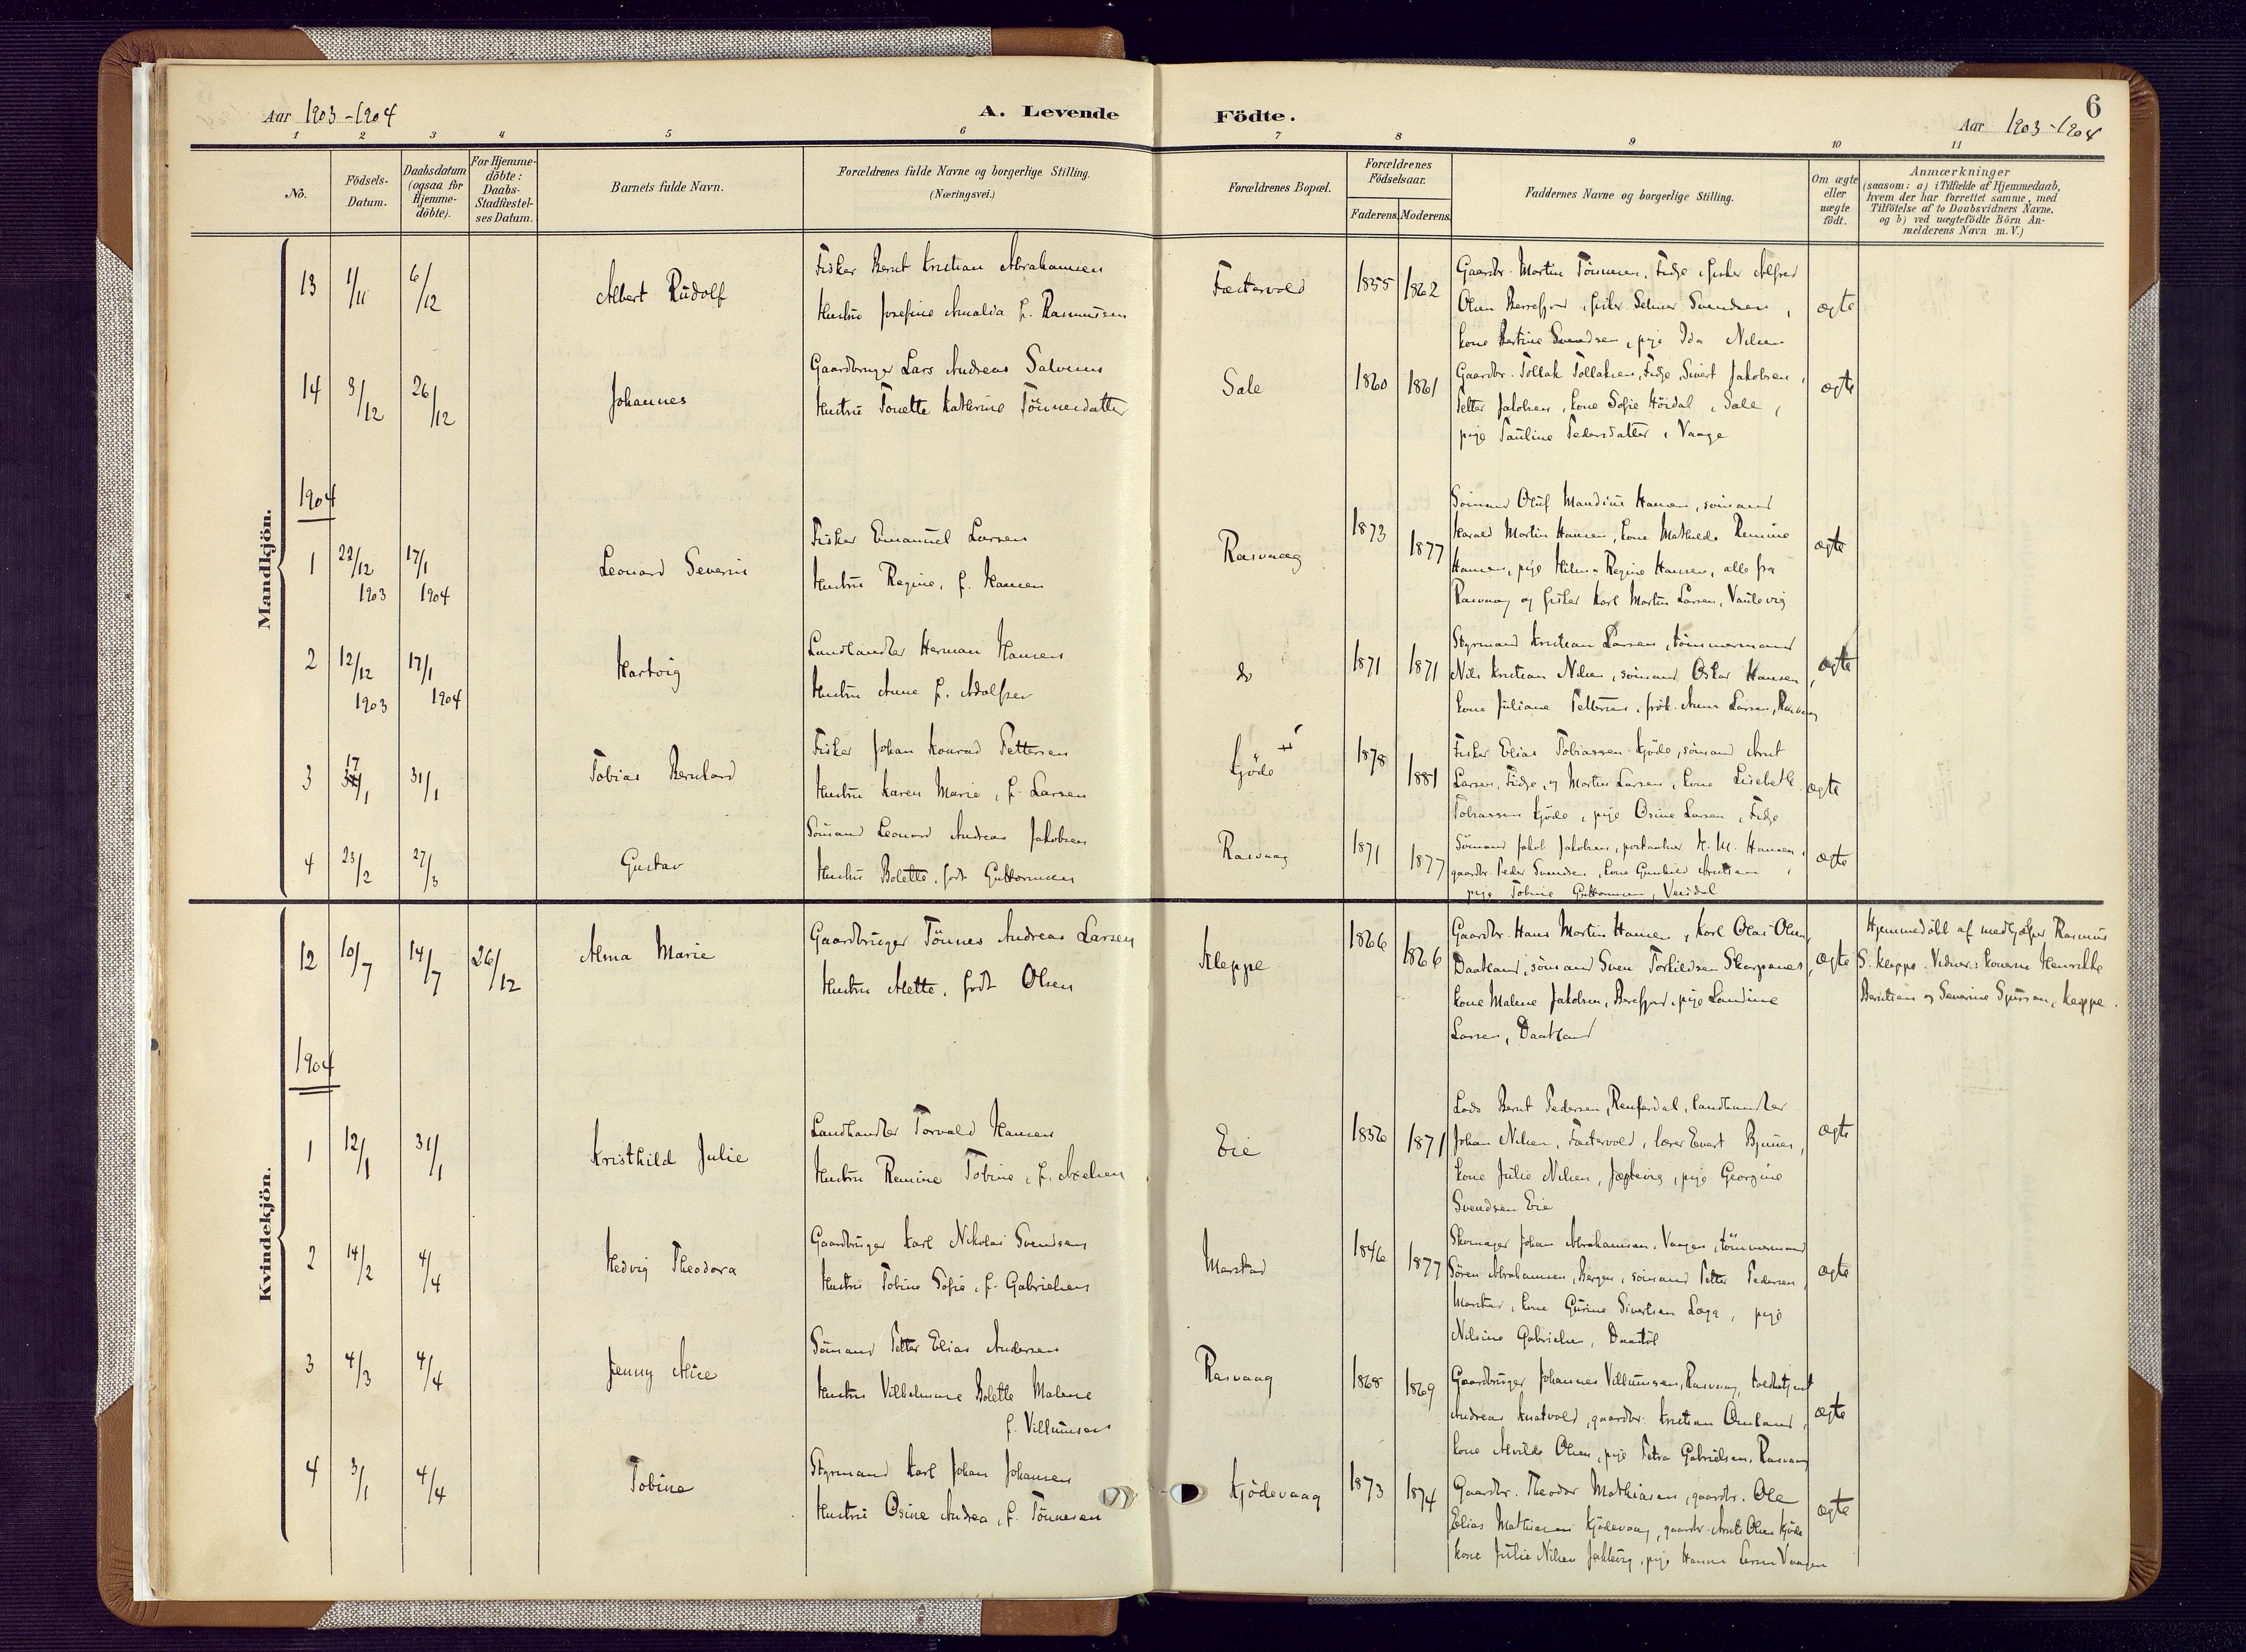 Aar 1903-1904
A. Levende
Födte.
6
Aar 1903-1904
1 2 3 4 5 6 7 8 9 10 11
No.
Födsels-Datum.
Daabsdatum (ogsaa for Hjemme-döbte).
For Hjemme-döbte: Daabs-Stadfæstel-ses Datum.
Barnets fulde Navn.
Forældrenes fulde Navne og borgerlige Stilling.
(Næringsvei.)
Forældrenes Bopæl.
Forældrenes Födselsaar.
Faderens. Moderens.
Faddernes Navne og borgerlige Stilling.
Om ægte eller uægte födt.
Anmærkninger
(saasom: a) i Tilfælde af Hjemmedaab,
hvem der har forrettet samme, med
Tilföielse af to Daabsvidners Navne,
og b) ved uægtefödte Börn An-
melderens Navn m. V.)
Mandkjön.
13 1/11 6/12 Albert Rudolf
Fisker Bernt Kristian Abrahamsen
Hustru Josefine Amalia f. Rasmussen
Fæstervold 1855 1862
Gaardbr. Martin Tönnesen, Fidje, fisker Alfred
Olsen Berrefjord, fisker Selmer Svendsen,
kone Bertine Svendsen, pige Ida Nilsen
ægte
14 3/12 26/12 Johannes
Gaardbruger Lars Andreas Salvesen
Hustru Tonette Kathrine Tönnesdatter
Sale 1860 1861
Gaardbr. Tollak Tollaksen, Fidje, Sivert Jakobsen,
Petter Jakobsen, kone Sofie Höidal, Sale,
pige Pauline Pedersdatter, Vaage
ægte
1904
1 22/12 1903 17/1 1904 Leonard Severin
Fisker Emanuel Larsen
Hustru Regine, f. Hansen
Rasvaag 1873 1877
Sömand Oluf Mandius Hansen, sömand
Harald Martin Hansen, kone Mathilde Remine
Hansen, pige Hilma Regine Hansen, alle fra
Rasvaag og fisker Karl Martin Larsen, Vaulevig
ægte
2 12/12 1903 17/1 1904 Hartvig
Landhandler Herman Hansen
Hustru Anne f. Adolfsen
do 1871 1871
Styrmand Kristian Larsen, tömmermand
Nils Kristian Nilsen, sömand Oskar Hansen,
kone Juliane Pettersen, frök. Anna Larsen, Rasvaag
ægte
3 17/1 31/1 Tobias Bernhard
Fisker Johan Konrad Pettersen
Hustru Karen Marie, f. Larsen
Kjöde 1878 1881
Fisker Elias Tobiassen Kjöde, sömand Arnt
Larsen, Fidje, og Martin Larsen, kone Lisebeth
Tobiassen Kjöde, pige Osine Larsen, Fidje
ægte
4 23/2 27/3 Gustav
Sömand Leonard Andreas Jakobsen
Hustru Bolette, födt Guttormsen
Rasvaag 1871 1877
Sömand Jakob Jakobsen, postaabner H. M. Hansen,
gaardbr. Peder Svendsen, kone Gunhild
pige Tobine Guttormsen, Veisdal
ægte
Kvindekjön.
12 10/7 14/7 26/12 Alma Marie
Gaardbruger Tönnes Andreas Larsen
Hustru Alette, födt Olsen
Kleppe 1866 1866
Gaardbr. Hans Martin Hansen, Karl Olai Olsen,
Daatland, sömand Sven Torkildsen Skarpenes,
kone Malene Jakobsen, Berefjord, pige Landine
Larsen, Daatland
ægte
Hjemmedöbt af medhjælper Rasmus
S. Kleppe. Vidner: konerne Henrikke
Berntsen og Severine Sjursen, Kleppe.
1904
1 12/1 31/1 Kristhild Julie
Landhandler Torvald Hansen
Hustru Remine Tobine, f. Axelsen
Eie 1856 1871
Lods Bernt Pedersen, Renferdal, landhandler
Johan Nilsen, Fæstervold, lærer Evert Bjunes,
kone Julie Nilsen, Jægtevig, pige Georgine
Svendsen Eie
ægte
2 14/2 4/4 Hedvig Theodora
Gaardbruger Karl Nikolai Svendsen
Hustru Tobine Sofie, f. Gabrielsen
Marstad 1846 1877
Skomager Johan Abrahamsen, Vaagen, tömmermand
Sören Abrahamsen, Bergen, sömand Petter Pedersen,
Marstad, kone Gurine Sivertsen Log, pige
Nilsine Gabrielsen, Daastöl
ægte
3 4/3 4/4 Jenny Alice
Sömand Petter Elias Andersen
Hustru Vilhelmine Bolette Malene
f. Villumsen
Rasvaag 1868 1869
Gaardbruger Johannes Villumsen, Rasvaag, toldbetjent
Andreas Knatvold, gaardbr. Kristian Omland,
kone Alvilde Olsen, pige Petra Gabrielsen, Rasvaag
ægte
4 3/1 4/4 Tobine
Styrmand Karl Johan Johansen
Hustru Osine Andrea, f. Tönnesen
Kjödevaag 1873 1874
Gaardbr. Theodor Mathiasen, gaardbr. Ole
Elias Mathiasen Kjödevaag, gaardbr. Olsen Kjöde
kone Julie Nilsen Jektevig, pige Hanna Larsen Vaagen
ægte